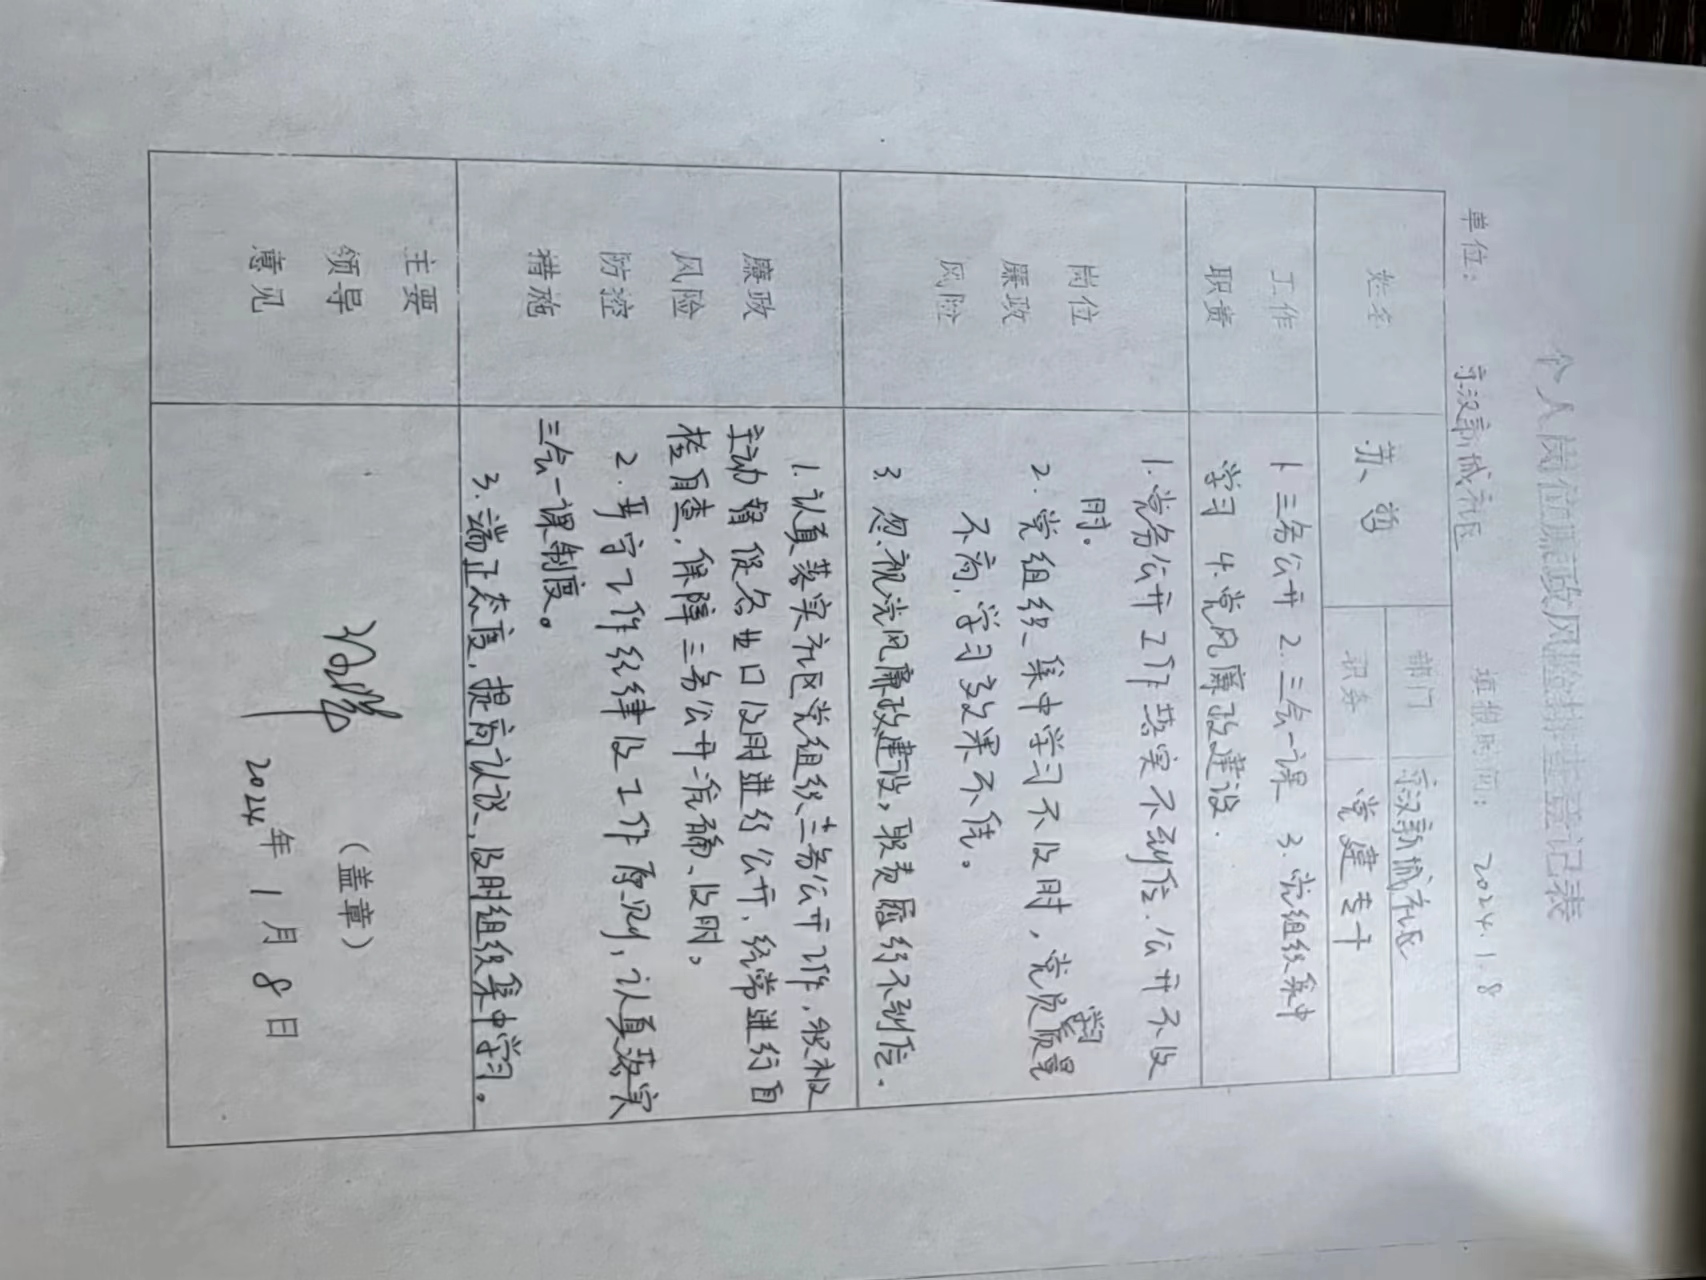 个人岗位廉政风险排查登记表
单位： 京汉新城社区 填报时间： 2024.1.8
姓名 苏哲 部门 京汉新城社区
职务 党建专干
工作
职责
1 三务公开 2.三会一课 3.党组织集中
学习 4.党风廉政建设.
岗位
廉政
风险
1.党务公开工作落实不到位.公开不及
时。
2.党组织集中学习不及时，党员学习质量
不高，学习效果不佳。
3.忽视党风廉政建设，职责履行不到位.
廉政
风险
防控
措施
1.认真落实社区党组织三务公开工作，积极
主动督促各业口及时进行公开，经常进行自
检自查，保障三务公开准确、及时。
2.严守工作纪律及工作原则，认真落实
三会一课制度。
3.端正态度，提高认识，及时组织集中学习。
主要
领导
意见
（盖章）
2024年1月8日